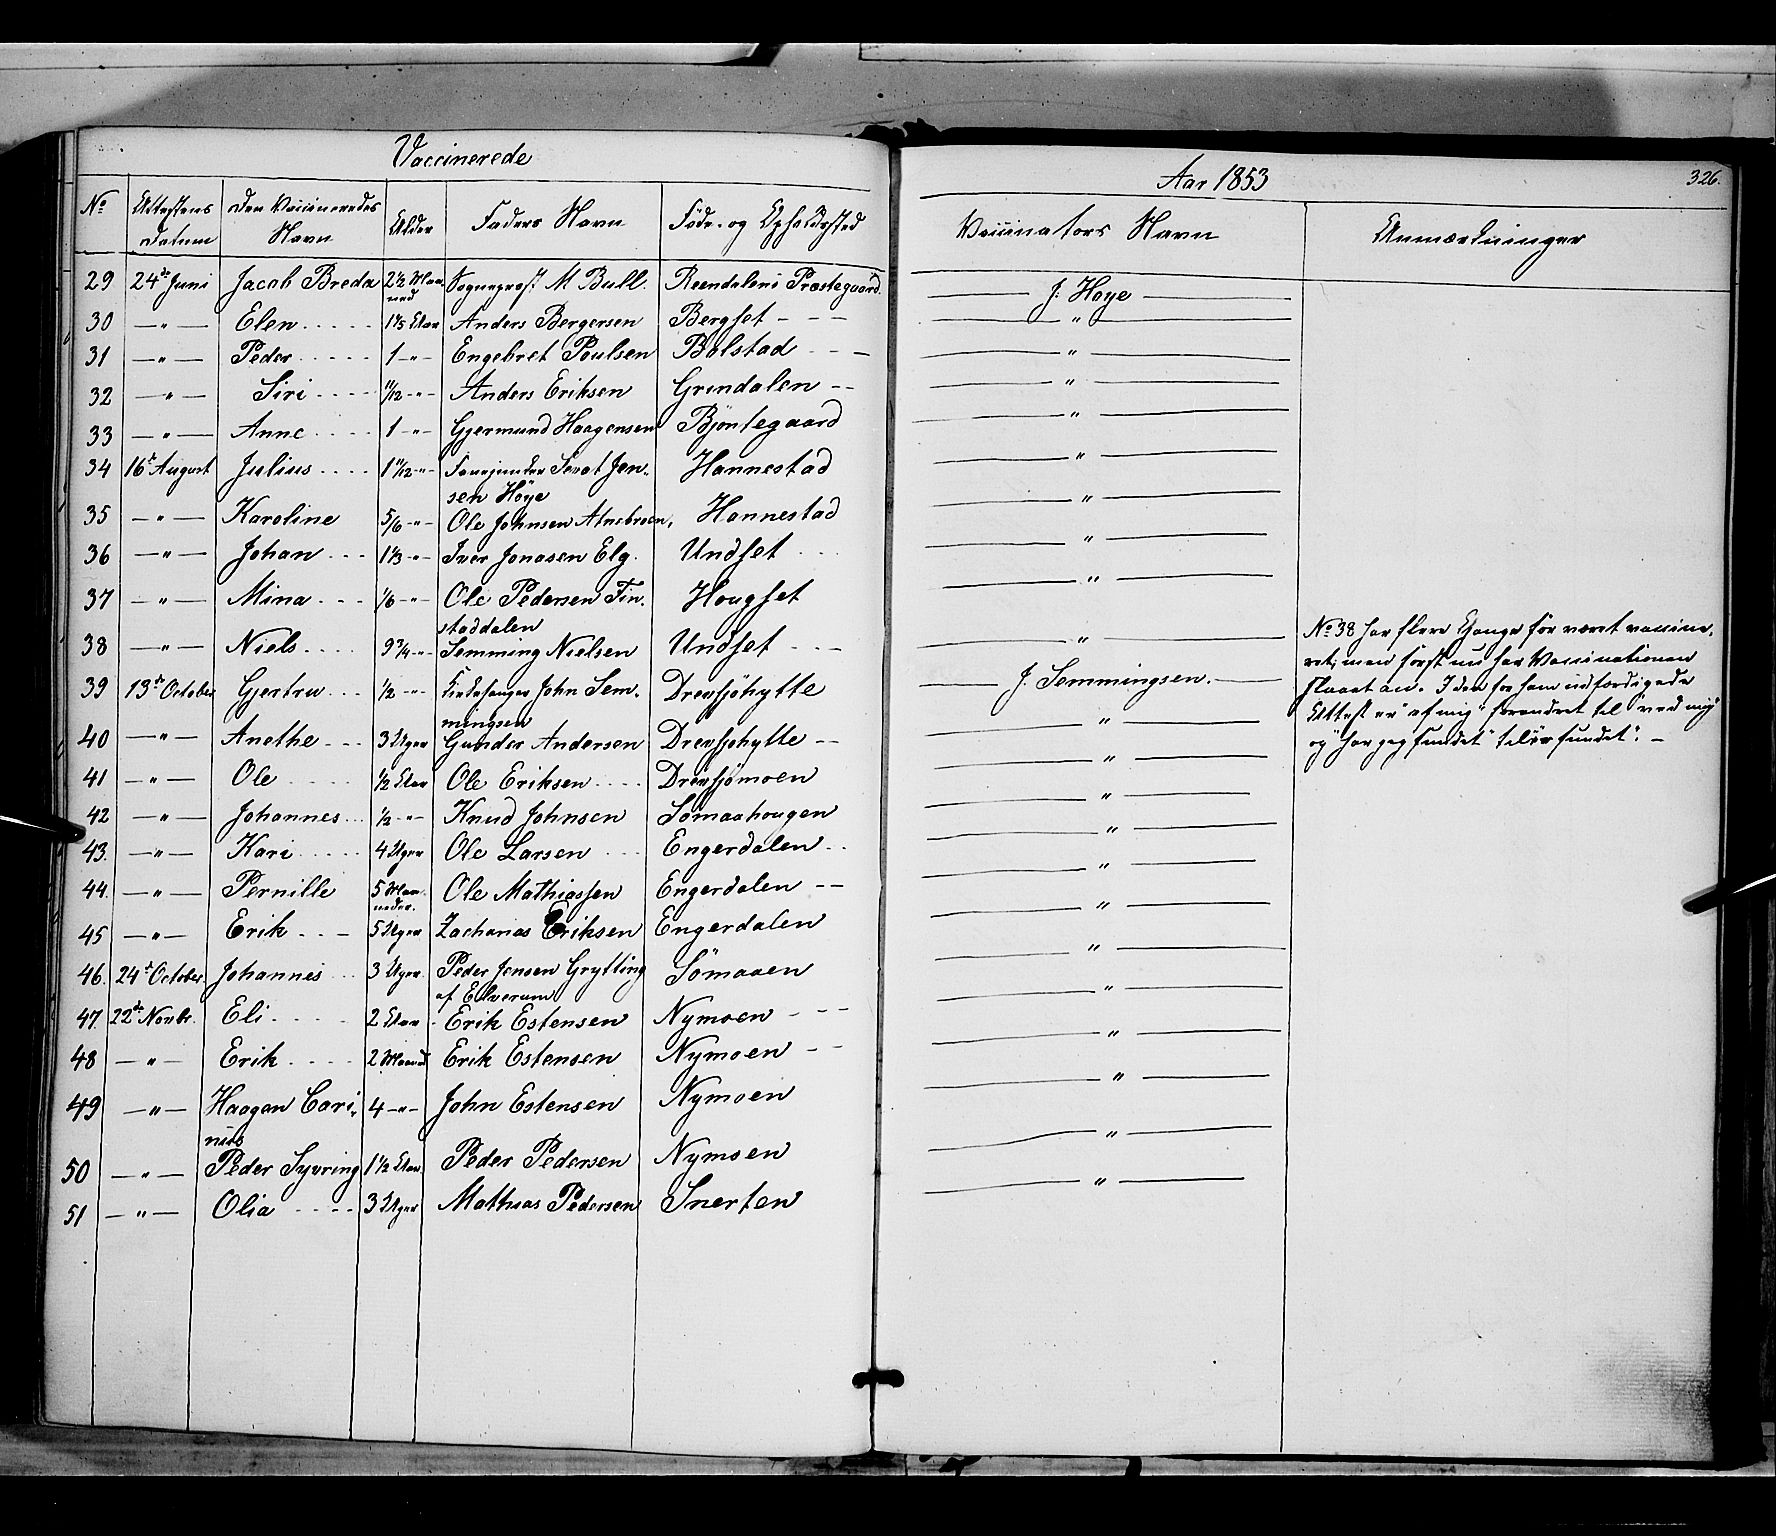 Vaccinerede
Aar 1853
326.
No Attestens Datum Den Vaccineredes Navn Alder Faders Navn Føde- og Opholdssted Vaccinators Navn Anmærkninger
29 24de Juni Jacob Breda 2½ Maaned Sogneprest M Bull. Reendalens Præstegaard. J. Høye
30 — " — Elen 1 1/5 Aar Anders Bergersen Bergset "
31 — " — Peder 1 — " — Engebret Poulsen Bolstad "
32 — " — Siri 11/12 — " — Anders Eriksen Grindalen "
33 — " — Anne 1 — " — Gjermund Haagensen Bjøntegaard "
34 16de August Julius 1 11/12 — " — Jensen Høye Hannestad "
35 — " — Karoline 5/6 — " — Ole Johnsen Atnebroen, Hannestad "
36 — " — Johan 1 1/3 — " — Iver Jonasen Elg. Undset "
37 — " — Mina 1/6 — " — Ole Pedersen Finstaddalen Hougset "
38 — " — Niels 9 3/4 — " — Semming Nielsen Undset "
39 13de October Gjertru ½ — " — Kirkesanger John Semmingsen Drevsjøhytte J. Semmingsen.
40 — " — Anethe 3 Uger Gunder Andersen Drevsjøhytte "
41 — " — Ole ½ Aar Ole Eriksen Drevsjømoen "
42 — " — Johannes ½ — " — Knud Johnsen Sømaahougen "
43. — " — Kari 4 Uger Ole Larsen Engerdalen "
44. — " — Pernille 5 Maaneder. Ole Mathiassen Engerdalen "
45 — " — Erik 5 Uger Zacharias Eriksen Engerdalen "
46. 24de October. Johannes 3 Uger. Peder Jensen Grytting af Elverum Sømaaen "
47. 22de Novbr. Eli 2 Aar Erik Estensen Nymoen "
48 — " — Erik 2 Maaned Erik Estensen Nymoen "
49 — " — Haagen Carinius 4 — " — John Estensen Nymoen "
50 — " — Peder Syvring 1½ Aar Peder Pedersen Nymoen "
51 — " — Olia 3 Uger Mathias Pedersen Snerten "
No 38 har flere Gange før været vaccine-
ret; men først nu har Vaccinationen
slaaet an. I den for ham udfærdigede
Attest er "af mig" forandret til "ved mig"
og "har jeg fundet" til "er fundet". —